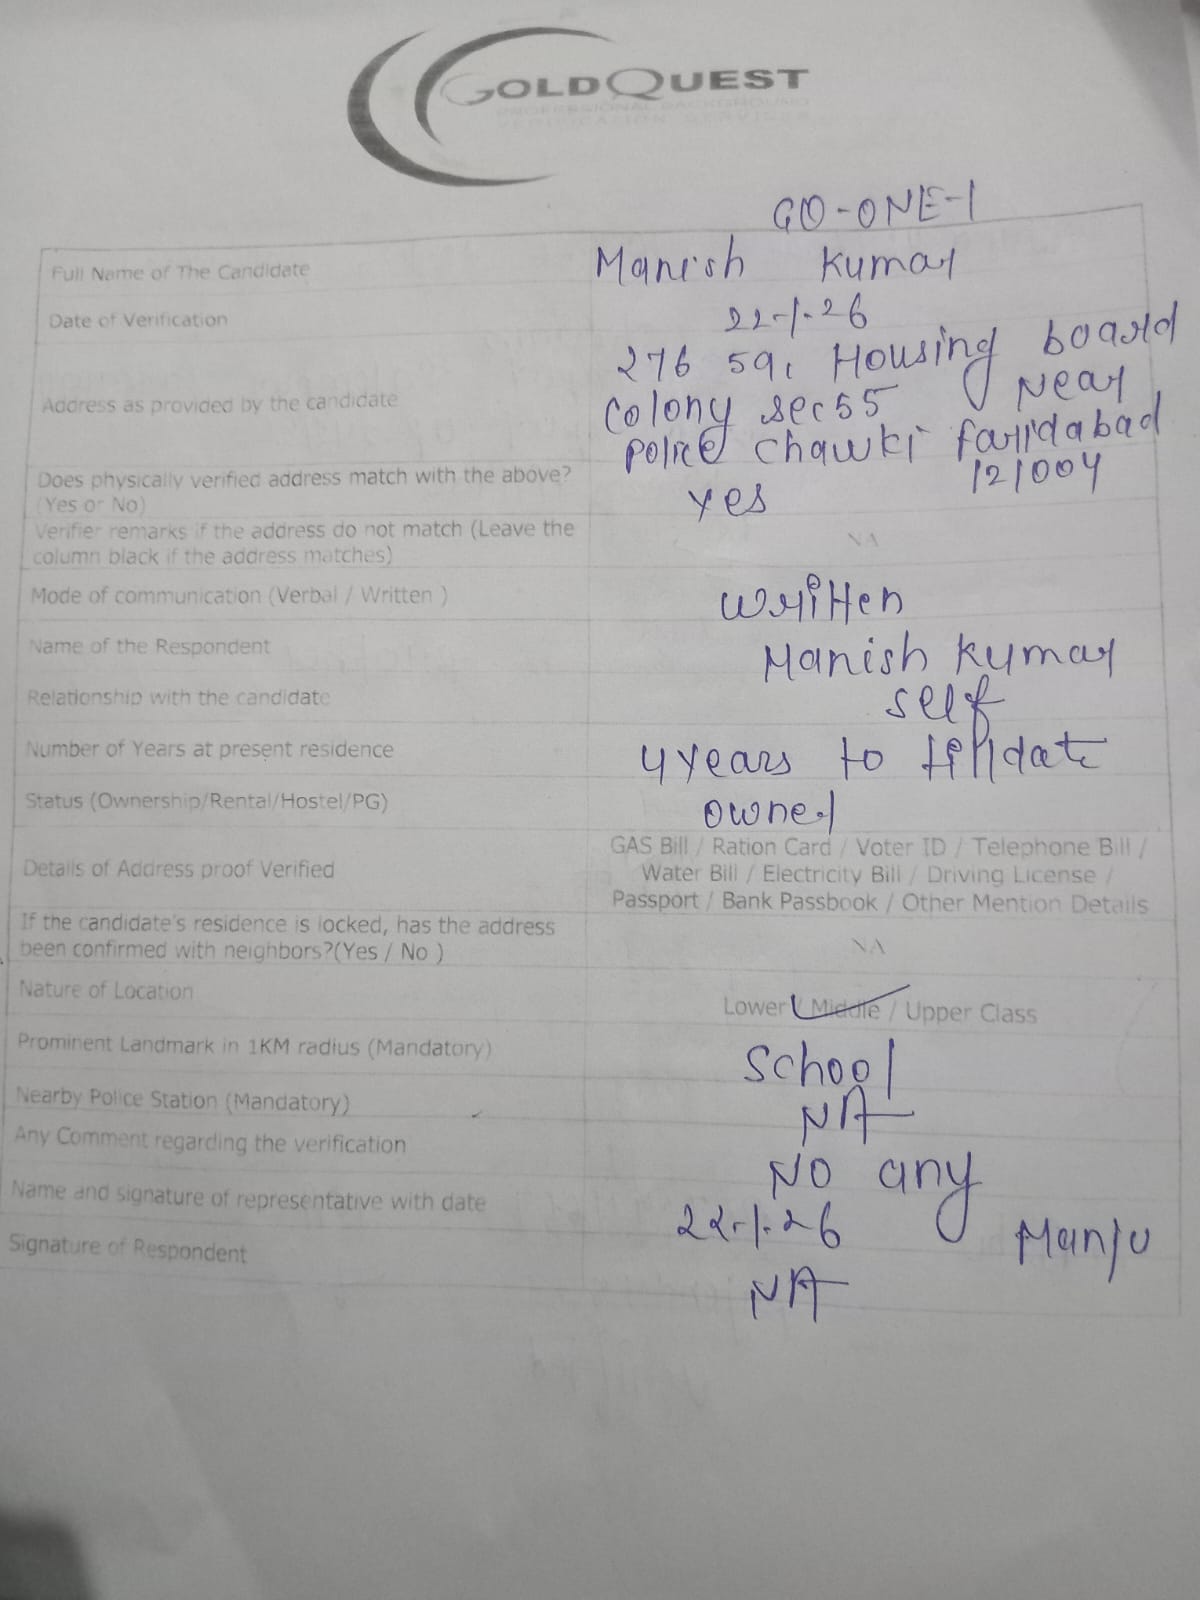 GOLDQUEST
PROFESSIONAL BACKGROUND
VERIFICATION SERVICES
GQ-ONE-1
Full Name of The Candidate Manish Kumar
Date of Verification 22-1-26
Address as provided by the candidate 276 Housing board
Colony sec 55 Near
Police Chawki faridabad
121004
Does physically verified address match with the above?
(Yes or No) yes
Verifier remarks if the address do not match (Leave the
column black if the address matches) NA
Mode of communication (Verbal / Written ) written
Name of the Respondent Manish Kumar
Relationship with the candidate self
Number of Years at present residence 4 years to tilldate
Status (Ownership/Rental/Hostel/PG) owned
Details of Address proof Verified GAS Bill / Ration Card / Voter ID / Telephone Bill /
Water Bill / Electricity Bill / Driving License /
Passport / Bank Passbook / Other Mention Details
If the candidate's residence is locked, has the address
been confirmed with neighbors?(Yes / No ) NA
Nature of Location Lower / Middle / Upper Class
Prominent Landmark in 1KM radius (Mandatory) School
Nearby Police Station (Mandatory) NA
Any Comment regarding the verification NO any
Name and signature of representative with date 22-1-26 Manju
Signature of Respondent NA